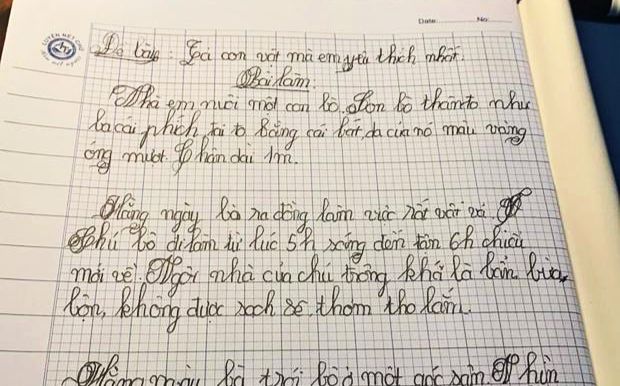 Date: No:
LUYỆN NÉT CHỮ
Đề bài: Tả con vật mà em yêu thích nhất.
Bài làm.
Nhà em nuôi một con bò. Con bò thân to như
là cái phích, tai to bằng cái bát, da của nó màu vàng
óng mượt. Chân dài 1m.
Hằng ngày bò ra đồng làm việc rất vất vả.
Chú bò đi làm từ lúc 5h sáng đến tận 6h chiều
mới về. Ngôi nhà của chú trông khá là bẩn, bừa
bộn, không được sạch sẽ, thơm tho lắm.
Hằng ngày bố trói bò ở một góc sân